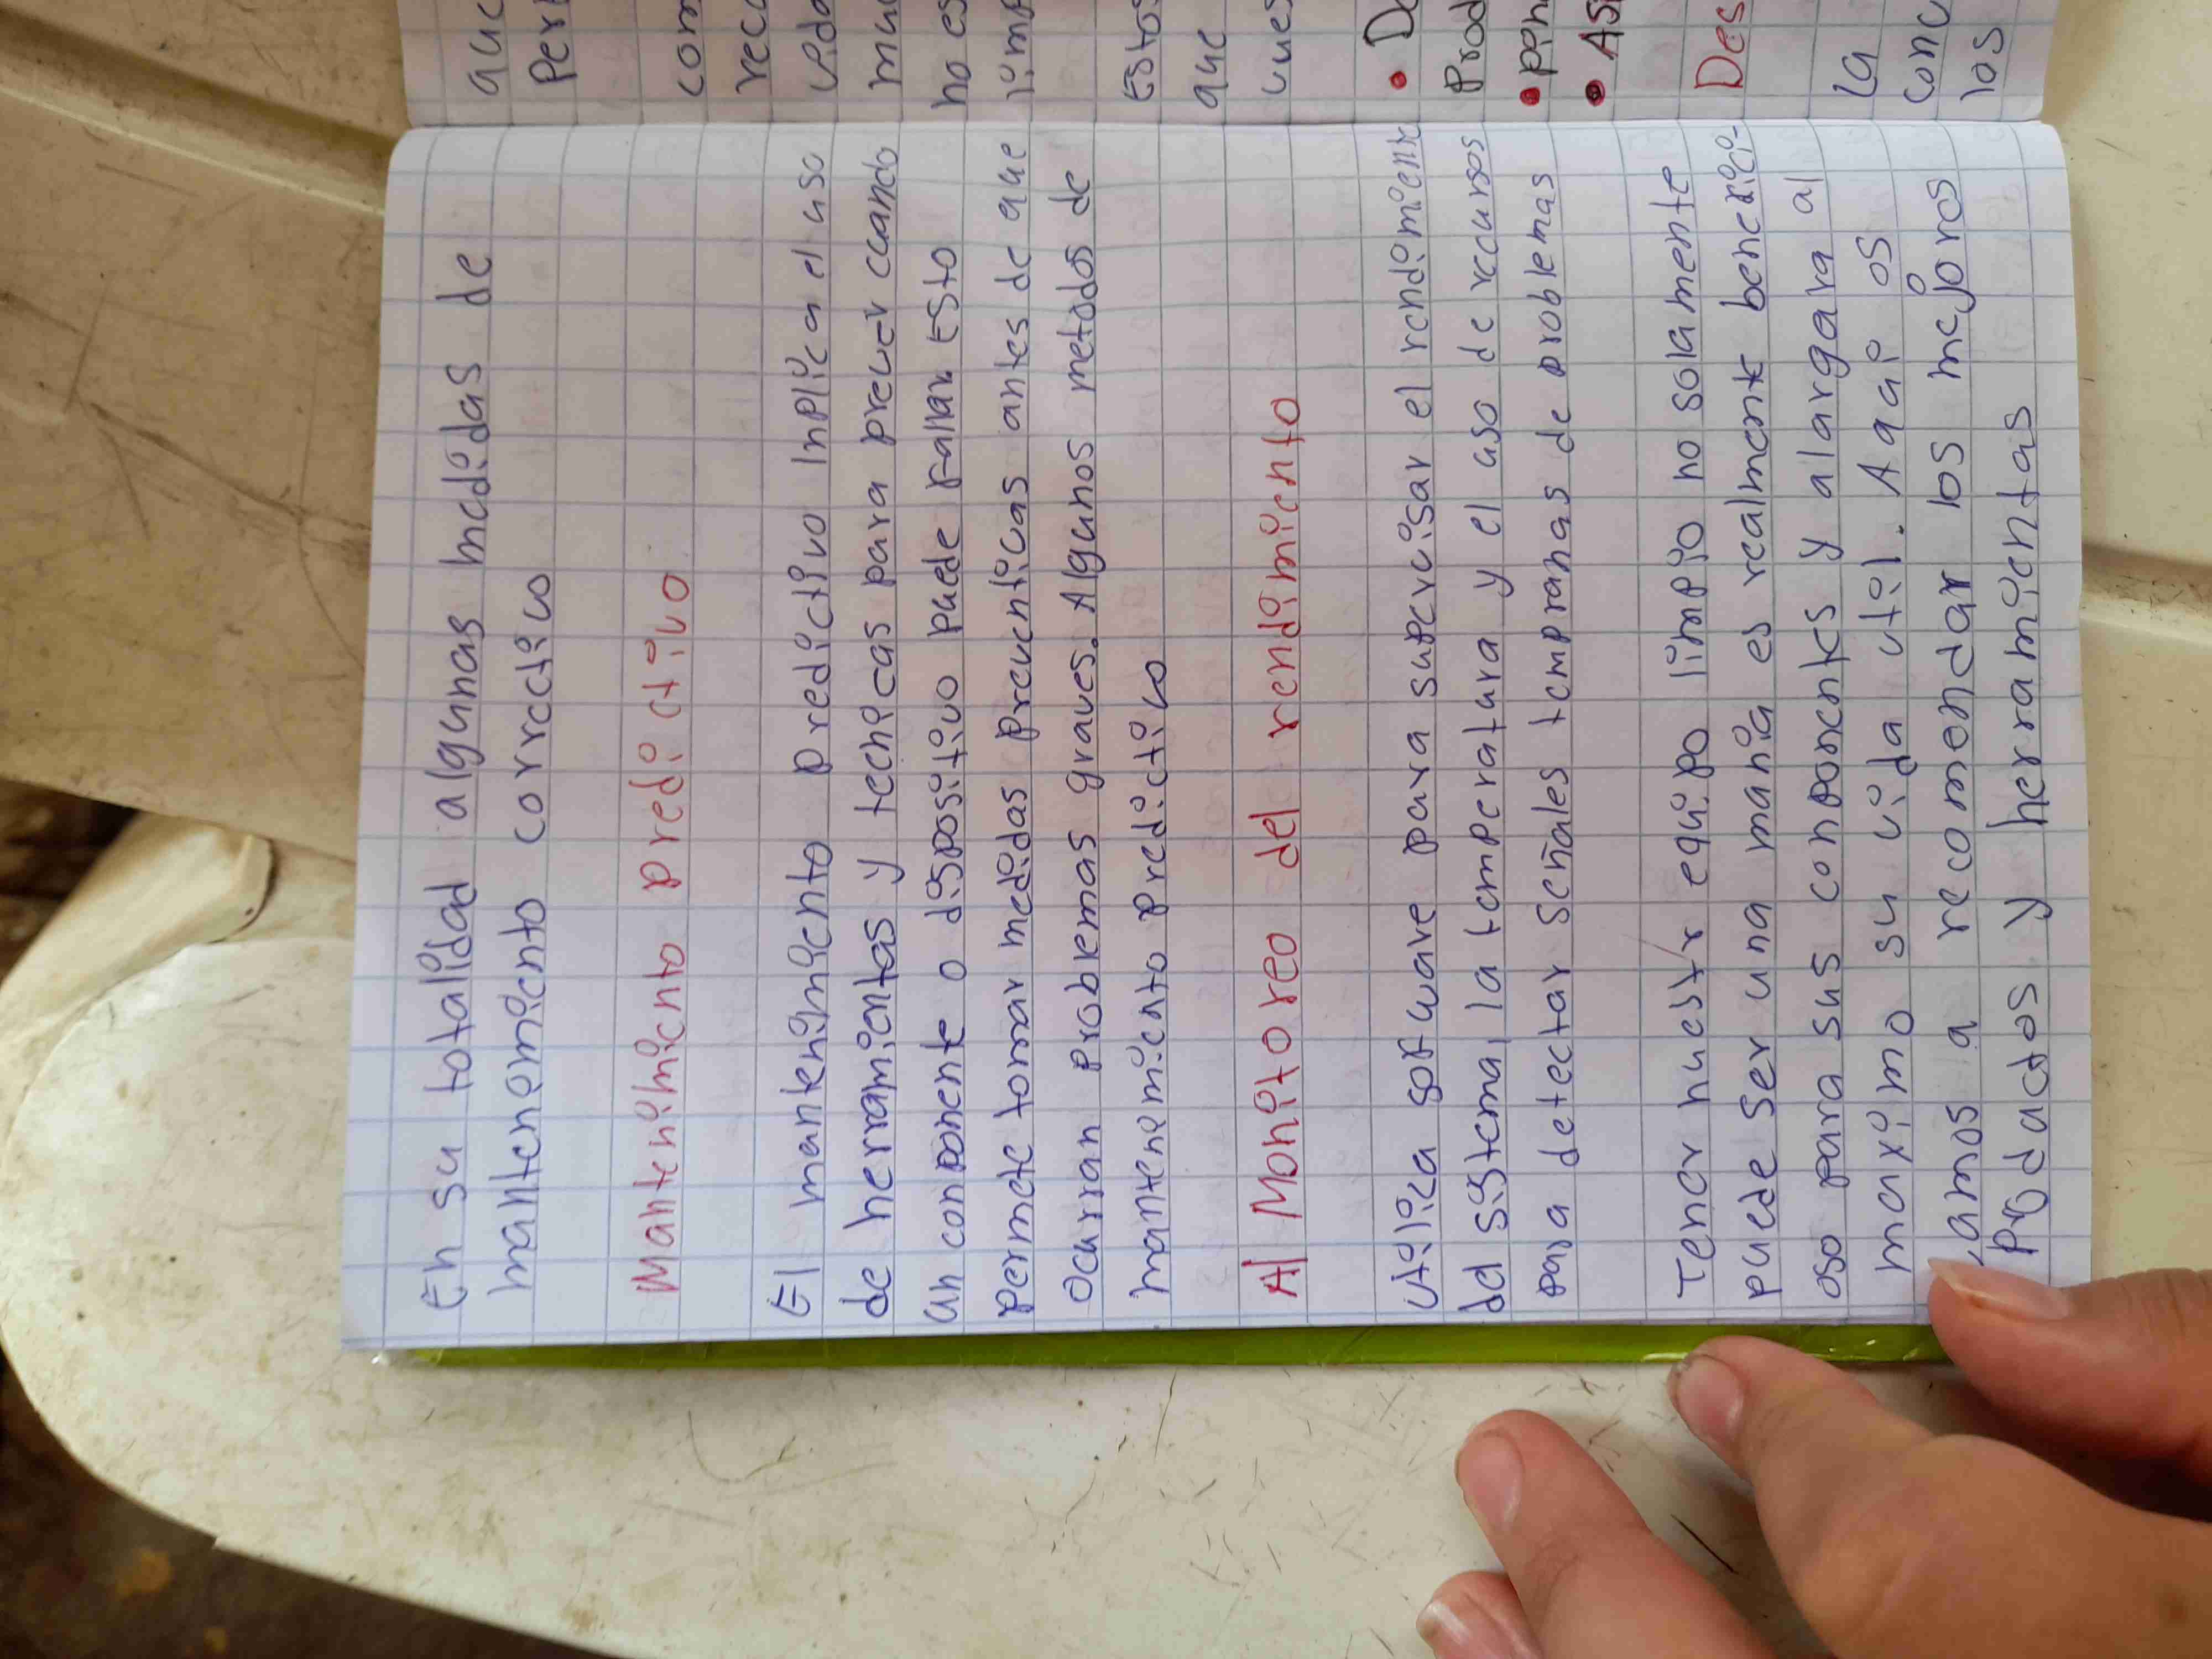 En su totalidad algunas medidas de
mantenemiento correctivo
Mantenimiento predictivo
El mantenimiento predictivo inplica el uso
de herramientas y tecnicas para prever cuando
un conponente o dispositivo puede fallar. Esto
permete tomar medidas preventivas antes de que
ocurran problemas graves. Algunos metodos de
mantenemiento predictivo
A| Monitoreo del rendimiento
Utiliza software para supervisar el rendimient
del sistema, la temperatura y el uso de recursos
para detectar señales tempranas de problemas
Tener nuestr equipo limpio no solamente
puede ser una mania es realmente benefici-
oso para sus conponentes y alargara al
maximo su vida util. Aqui os
vamos a recomendar los mejores
Productos y herramientas
que
Per
com
rec
vida
man
no es
limp
Estos
que
ves
• De
Prod
• pin
• As
Des
La
conc
los